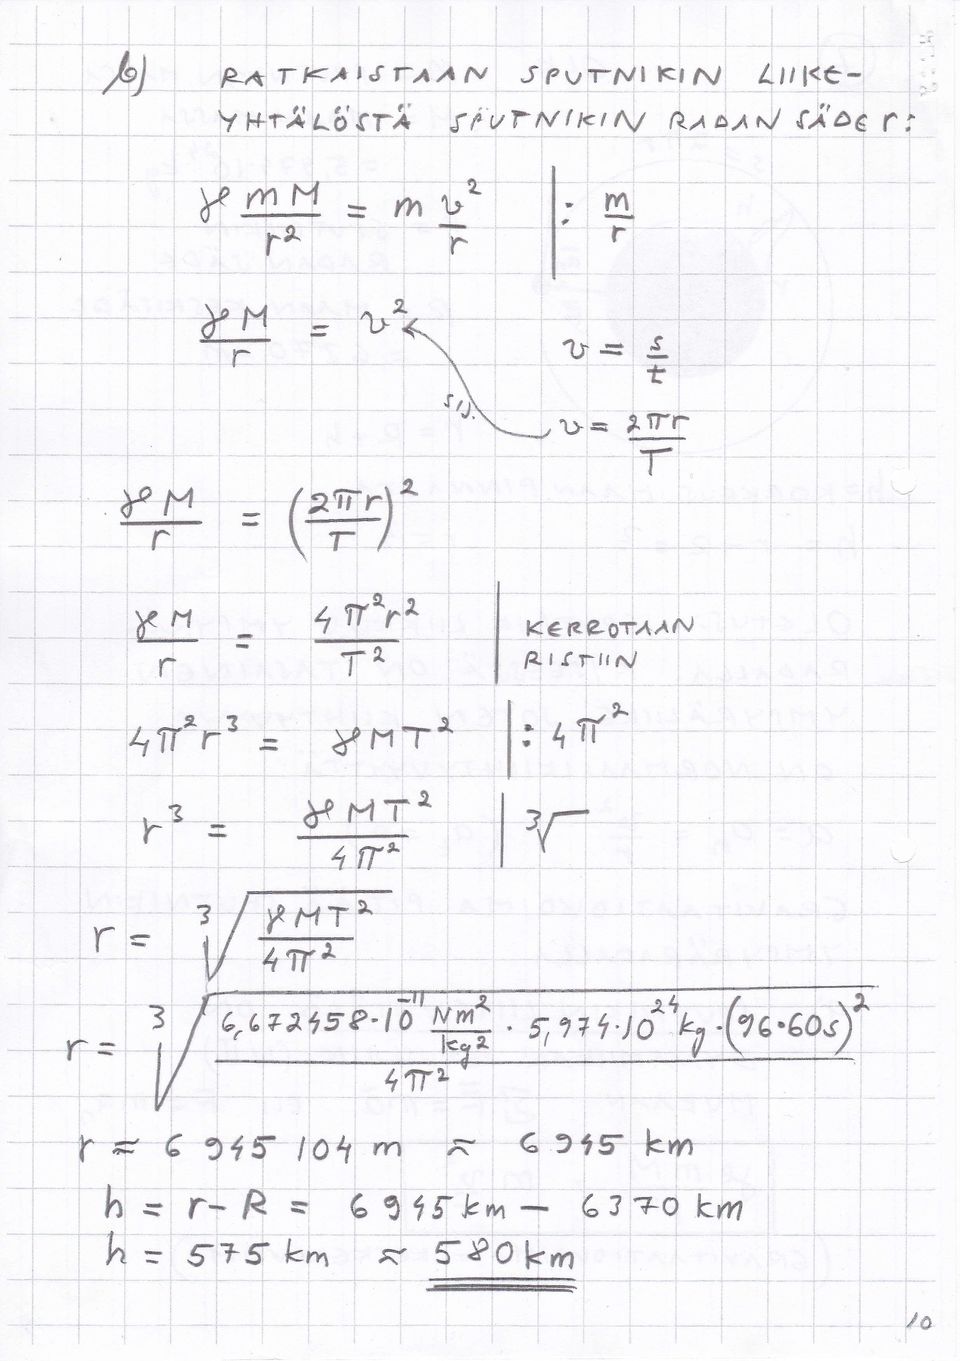 b) RATKAISTAAN SPUTNIKIN LIIKE-
YHTÄLÖSTÄ SPUTNIKIN RADAN SÄDE r:
γ mM/r² = m v²/r |: m/r
γM/r = v²
v = s/t
sij. v = 2πr/T
γM/r = (2πr/T)²
γM/r = 4π²r²/T² | KERROTAAN
RISTIIN
4π²r³ = γMT² |: 4π²
r³ = γMT²/4π² | ³√
r = ³√(γMT²/4π²)
r = ³√(6,672458·10⁻¹¹ Nm²/kg² · 5,974·10²⁴ kg·(96·60s)²/4π²)
r ≈ 6 945 104 m ≈ 6 945 km
h = r - R = 6 945 km - 6370 km
h = 575 km ≈ 580 km
10